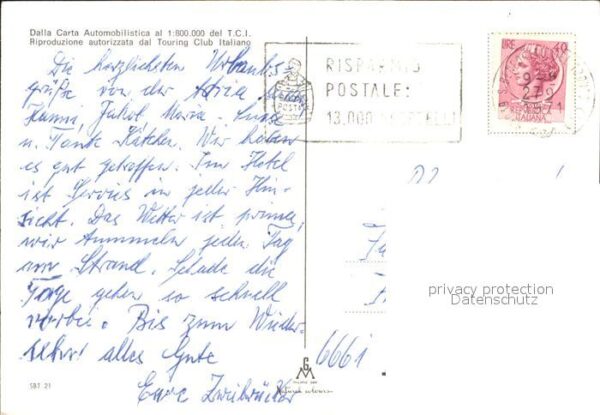 Dalla Carta Automobilistica al 1:800.000 del T.C.I.
Riproduzione autorizzata dal Touring Club Italiano
Die herzlichsten Urlaubs-
grüße von der Adria
Hanni, Jakob, Maria
u. Tante Kätchen. Wir haben
es gut getroffen. Im Hotel
ist Servies in jeder Hin-
sicht. Das Wetter ist prima,
wir tummeln jeden Tag
am Strand. Gerade die
Tage gehen so schnell
vorbei. Bis zum Wieder-
sehn! alles Gute
Eure
RISPARMIO
POSTALE:
13.000 SPORTELLI
LIRE 40
279
1971
ITALIANA
6661
privacy protection
Datenschutz
SBT 21